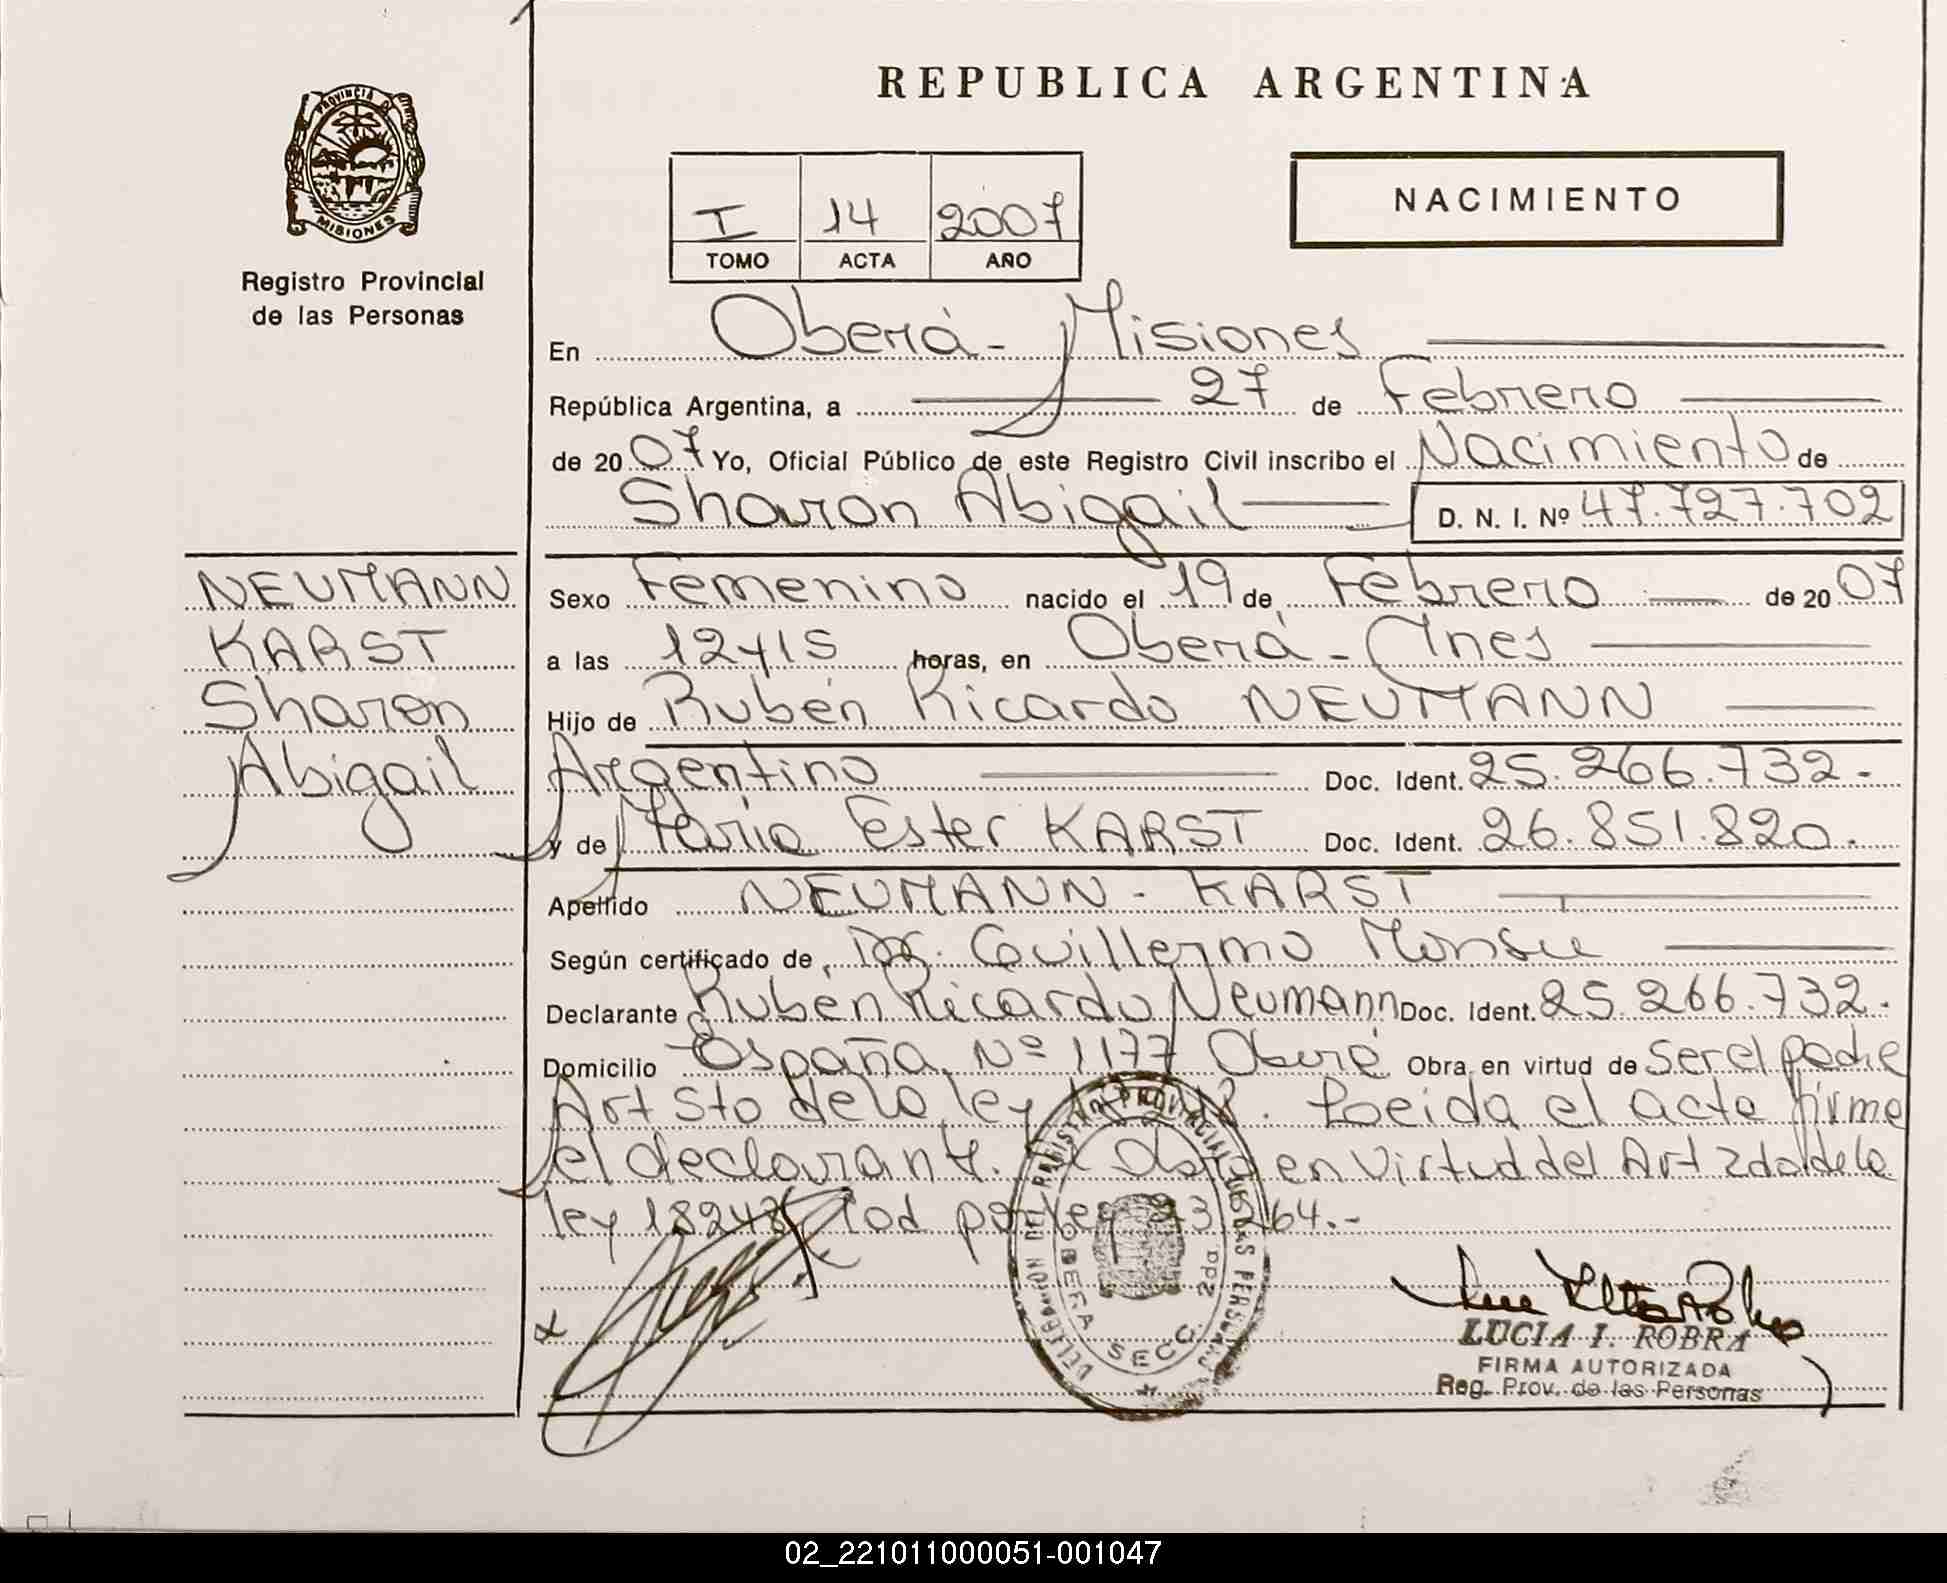 REPUBLICA ARGENTINA
PROVINCIA DE
MISIONES
Registro Provincial
de las Personas
I 14 2007
TOMO ACTA AÑO
NACIMIENTO
En Oberá - Misiones
República Argentina, a 27 de Febrero
de 2007 Yo, Oficial Público de este Registro Civil inscribo el Nacimiento de
Sharon Abigail D. N. I. Nº 47.727.702
NEUMANN
KARST
Sharon
Abigail
Sexo Femenino nacido el 19 de Febrero de 2007
a las 12y15 horas, en Oberá - Mnes
Hijo de Rubén Ricardo NEUMANN
Argentino Doc. Ident. 25.266.732.
y de María Ester KARST Doc. Ident. 26.851.820.
Apellido NEUMANN - KARST
Según certificado de Dr. Guillermo
Declarante Rubén Ricardo Neumann Doc. Ident. 25.266.732.
Domicilio España Nº 1177 Oberá Obra en virtud de ser el padre
Art 5to de la ley Leida el acta firma
el declarante. en virtud del Art 2do de la
ley 18248 Mod por ley 23.264.-
DELEGACION DEL REGISTRO PROVINCIAL DE LAS PERSONAS
OBERA SECC. 2da
LUCIA I. ROBRA
FIRMA AUTORIZADA
Reg. Prov. de las Personas
02_221011000051-001047